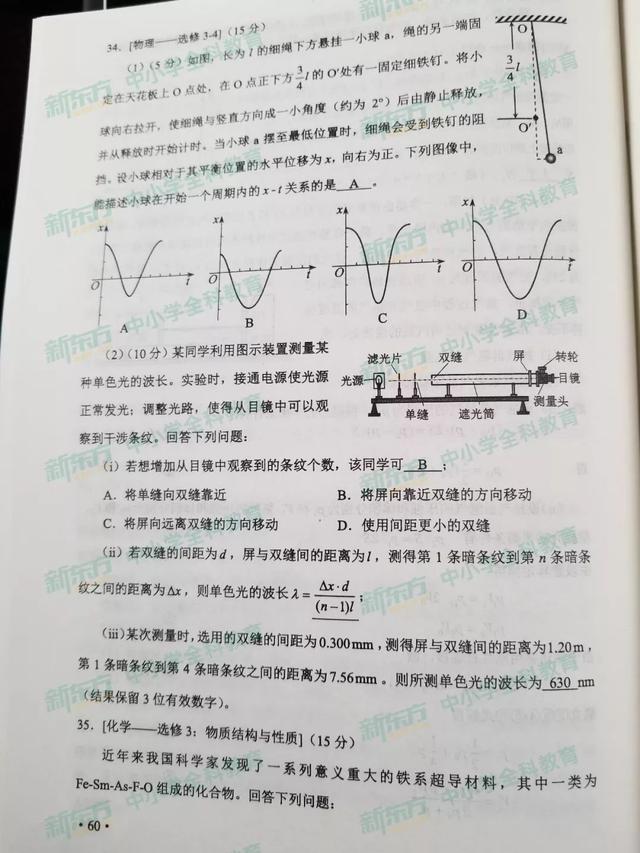 34. [物理——选修3-4]（15分）
（1）（5分）如图，长为l的细绳下方悬挂一小球a，绳的另一端固
定在天花板上O点处，在O点正下方3/4 l的O′处有一固定细铁钉。将小
球向右拉开，使细绳与竖直方向成一小角度（约为2°）后由静止释放，
并从释放时开始计时。当小球a摆至最低位置时，细绳会受到铁钉的阻
挡。设小球相对于其平衡位置的水平位移为x，向右为正。下列图像中，
能描述小球在开始一个周期内的x-t关系的是 A 。
O
3/4 l
O′
a
x
O
t
A
x
O
t
B
x
O
t
C
x
O
t
D
（2）（10分）某同学利用图示装置测量某
种单色光的波长。实验时，接通电源使光源
正常发光；调整光路，使得从目镜中可以观
察到干涉条纹。回答下列问题：
滤光片 双缝 屏 转轮
光源 目镜
单缝 遮光筒 测量头
（i）若想增加从目镜中观察到的条纹个数，该同学可 B ；
A．将单缝向双缝靠近 B．将屏向靠近双缝的方向移动
C．将屏向远离双缝的方向移动 D．使用间距更小的双缝
（ii）若双缝的间距为d，屏与双缝间的距离为l，测得第1条暗条纹到第n条暗条
纹之间的距离为Δx，则单色光的波长λ= Δx·d/(n−1)l ；
（iii）某次测量时，选用的双缝的间距为0.300mm，测得屏与双缝间的距离为1.20m，
第1条暗条纹到第4条暗条纹之间的距离为7.56mm。则所测单色光的波长为 630 nm
（结果保留3位有效数字）。
35. [化学——选修3：物质结构与性质]（15分）
近年来我国科学家发现了一系列意义重大的铁系超导材料，其中一类为
Fe-Sm-As-F-O组成的化合物。回答下列问题：
·60·
新东方 中小学全科教育